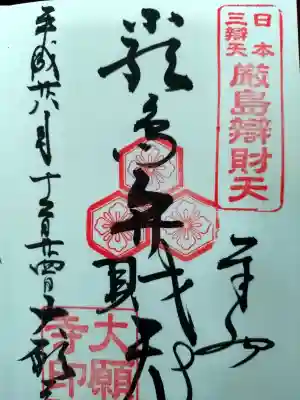 日本
三辯天
厳島辯財天
奉拝
厳島弁財天
大願
寺印
平成廿八年十二月廿四日大願寺